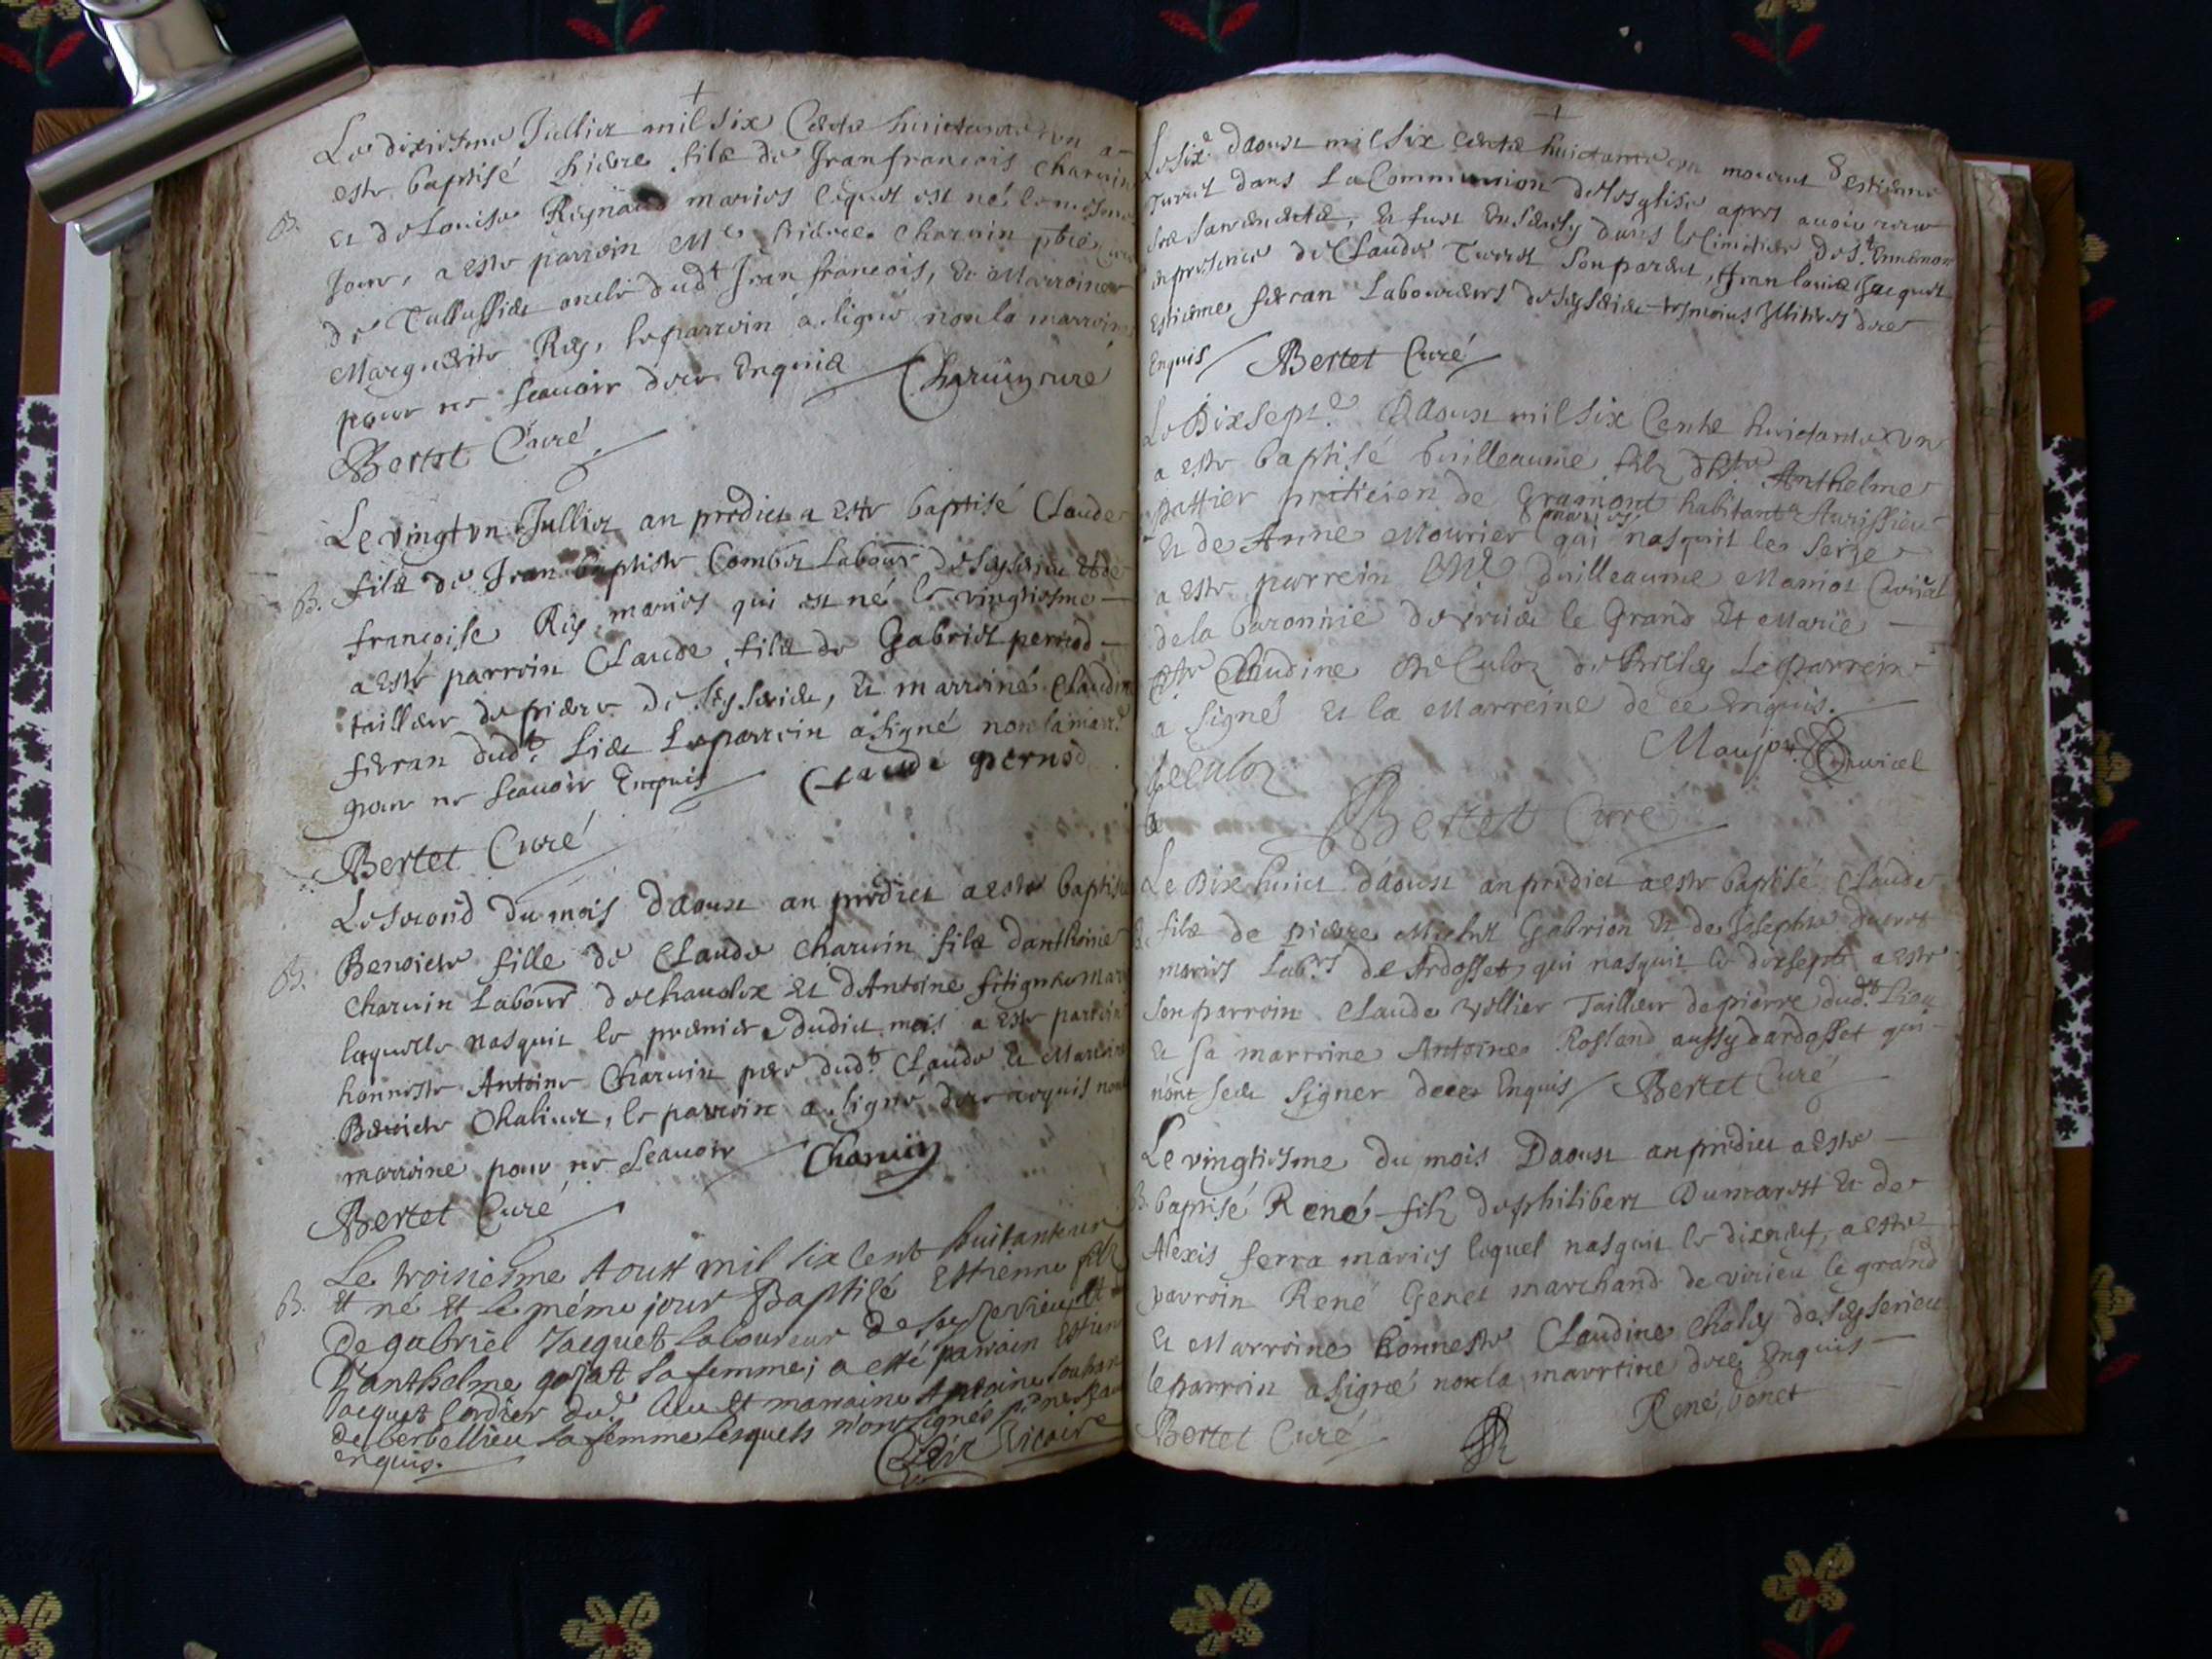 +
Le dixiesme Jullier mil six Cents huictante un a
este baptisé pierre fils de Jean francois Charuin
B. et de Louise Reynaud maries lequel est né le mesme
Jour, a este parrein Me pierre Charuin pbre Curé
de oncle dudt Jean francois, et Marreine
Marguerite Rey, le parrein a signé non la marreine
pour ne scauoir de ce Enquis Charuin curé
Bertet Curé
Le vingt vn Jullier an predict a este baptisé Claude
B. fils de Jean baptiste Combet Labour de Seyserieu et de
francoise Rey maries qui est né le vingtiesme
a esté parrein Claude fils de Gabriel pernod
tailleur de pierre de Seyserieu, et marreine Claudine
feran dudt lieu Le parrein a signé non la marr
pour ne scauoir Enquis Claude pernod
Bertet Curé
Le second du mois daoust an predict a este baptisée
B. Benoicte fille de Claude Charuin fils danthoine
Charuin Labour de et dAntoine mar
laquelle nasquit le premier dudict mois a este parrein
honneste Antoine Charuin pere dudt Claude et Marreine
Benoicte Chaliuet, le parrein a signé de ce requis non
marreine pour ne scauoir Charuin
Bertet Curé
Le troisiesme Aoust mil six cent huitante un
B. Et né Et le méme jour Baptisé Estienne filz
de gabriel Jacquet laboureur de Seyzerieu Et
D'anthelme gojat sa femme; a esté parrain Estien
Jacquet Cordier dud lieu Et marraine Antoine
de berbellieu sa femme lesquels n'ont signés pr ne scau
enquis. Vicaire
+
Le six.e daoust mil six cents huictante un mourut Estienne
Turret dans La Communion de Lesglise apres auoir receu
ses sacrements, et fust Enseuely dans le cimetiere de St. Ennemon
en presence de Claude Turret son parent, Jean louis Jacquet
Estienne feran Laboureurs de Seyserieu tesmoins de ce
Enquis Bertet Curé
Le Dixsept.e Daoust mil six Cents huictante vn
a este baptisé Guilleaume filz d'h.te Anthelme
Pattier pratticien de Gramont habitant a
et de Anne Mourier maries qui nasquit le Seize
a este parrein Me Guilleaume Maniot Curial
de la baronnie de virieu le Grand Et Marie
Claudine De Culoz de Le parrein
a signé et la Marreine de ce Enquis.
Deculoz Curial
Bertet Curé
Le Dixhuict daoust an predict a este baptisé Claude
B. fils de pierre Michel Gabrion et de Josephte ducret
maries Lab.rs de Ardosset, qui nasquit le dixsept a este
son parrein Claude vollier Tailleur de pierre dud.t Lieu
et sa marreine Antoine Rosland aussy dardosset qui
n'ont sceu signer de ce Enquis Bertet Curé
Le vingtiesme du mois Daoust an predict a este
B. baptisé René filz de philibert Dumarest et de
Alexis ferra maries lequel nasquit le dixneuf, a este
parrein René Genet marchand de virieu le grand
et Marreine honneste Claudine Chaley de Seyserieu
le parrein a signé non la marreine de ce Enquis
René Genet
Bertet Curé